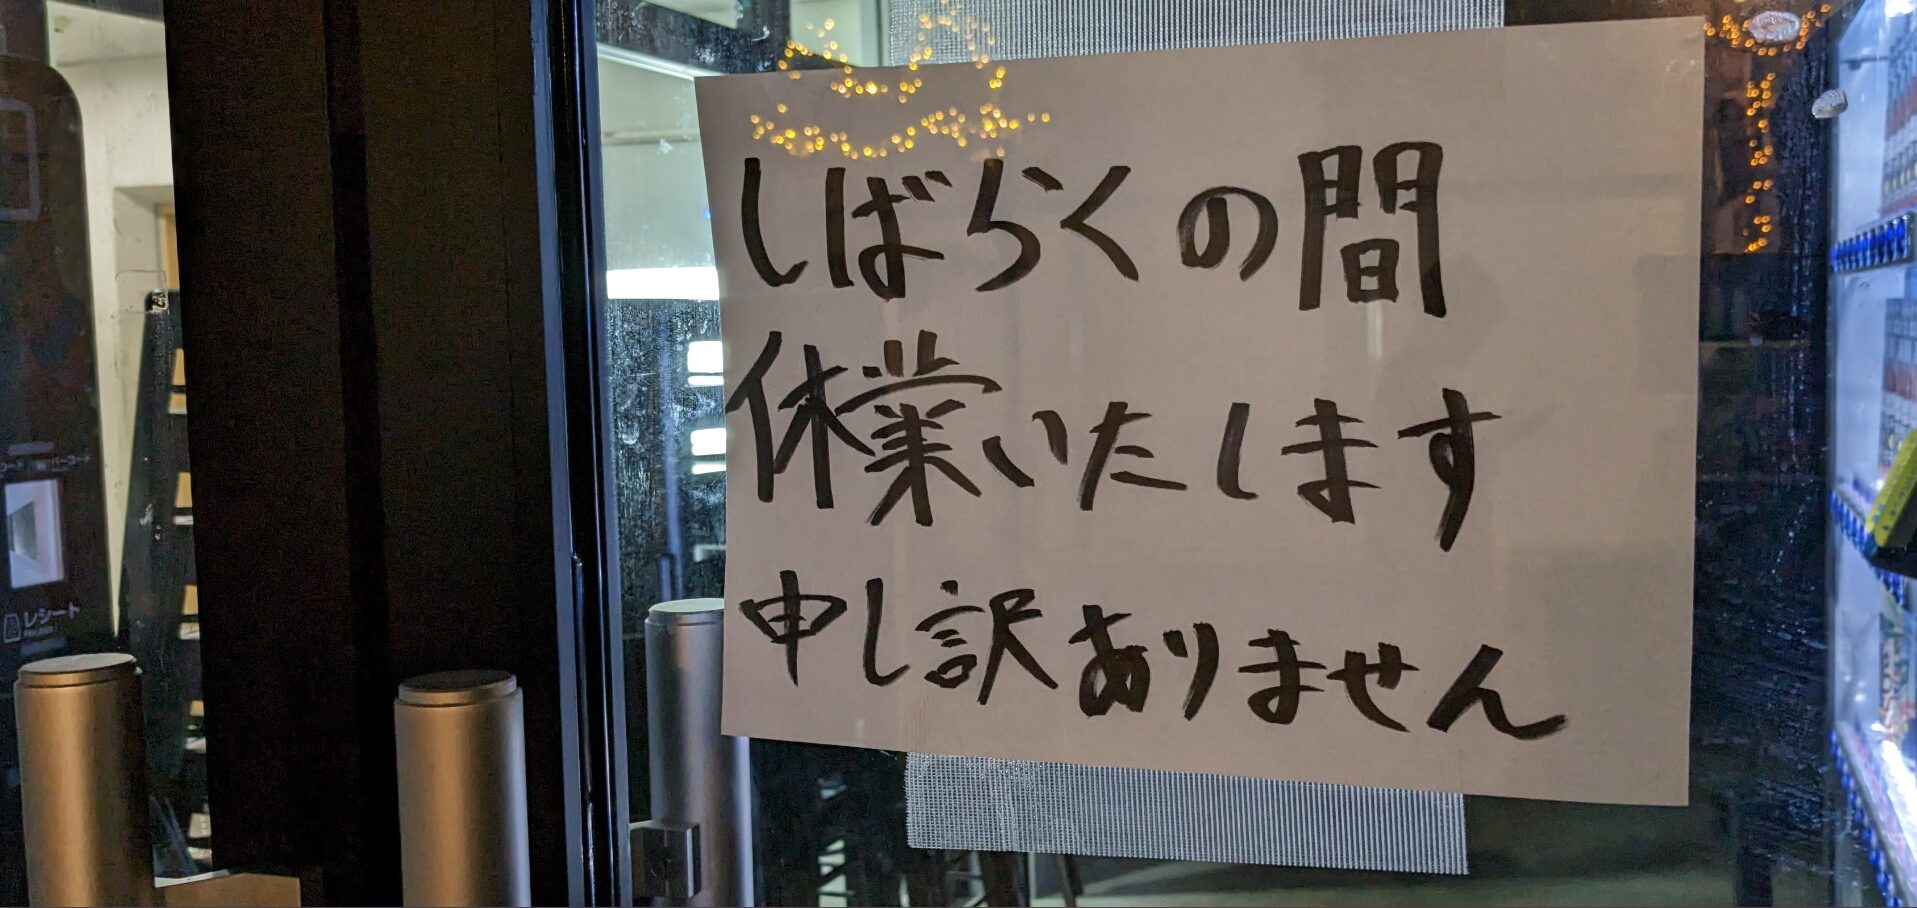 しばらくの間
休業いたします
申し訳ありません
レシート